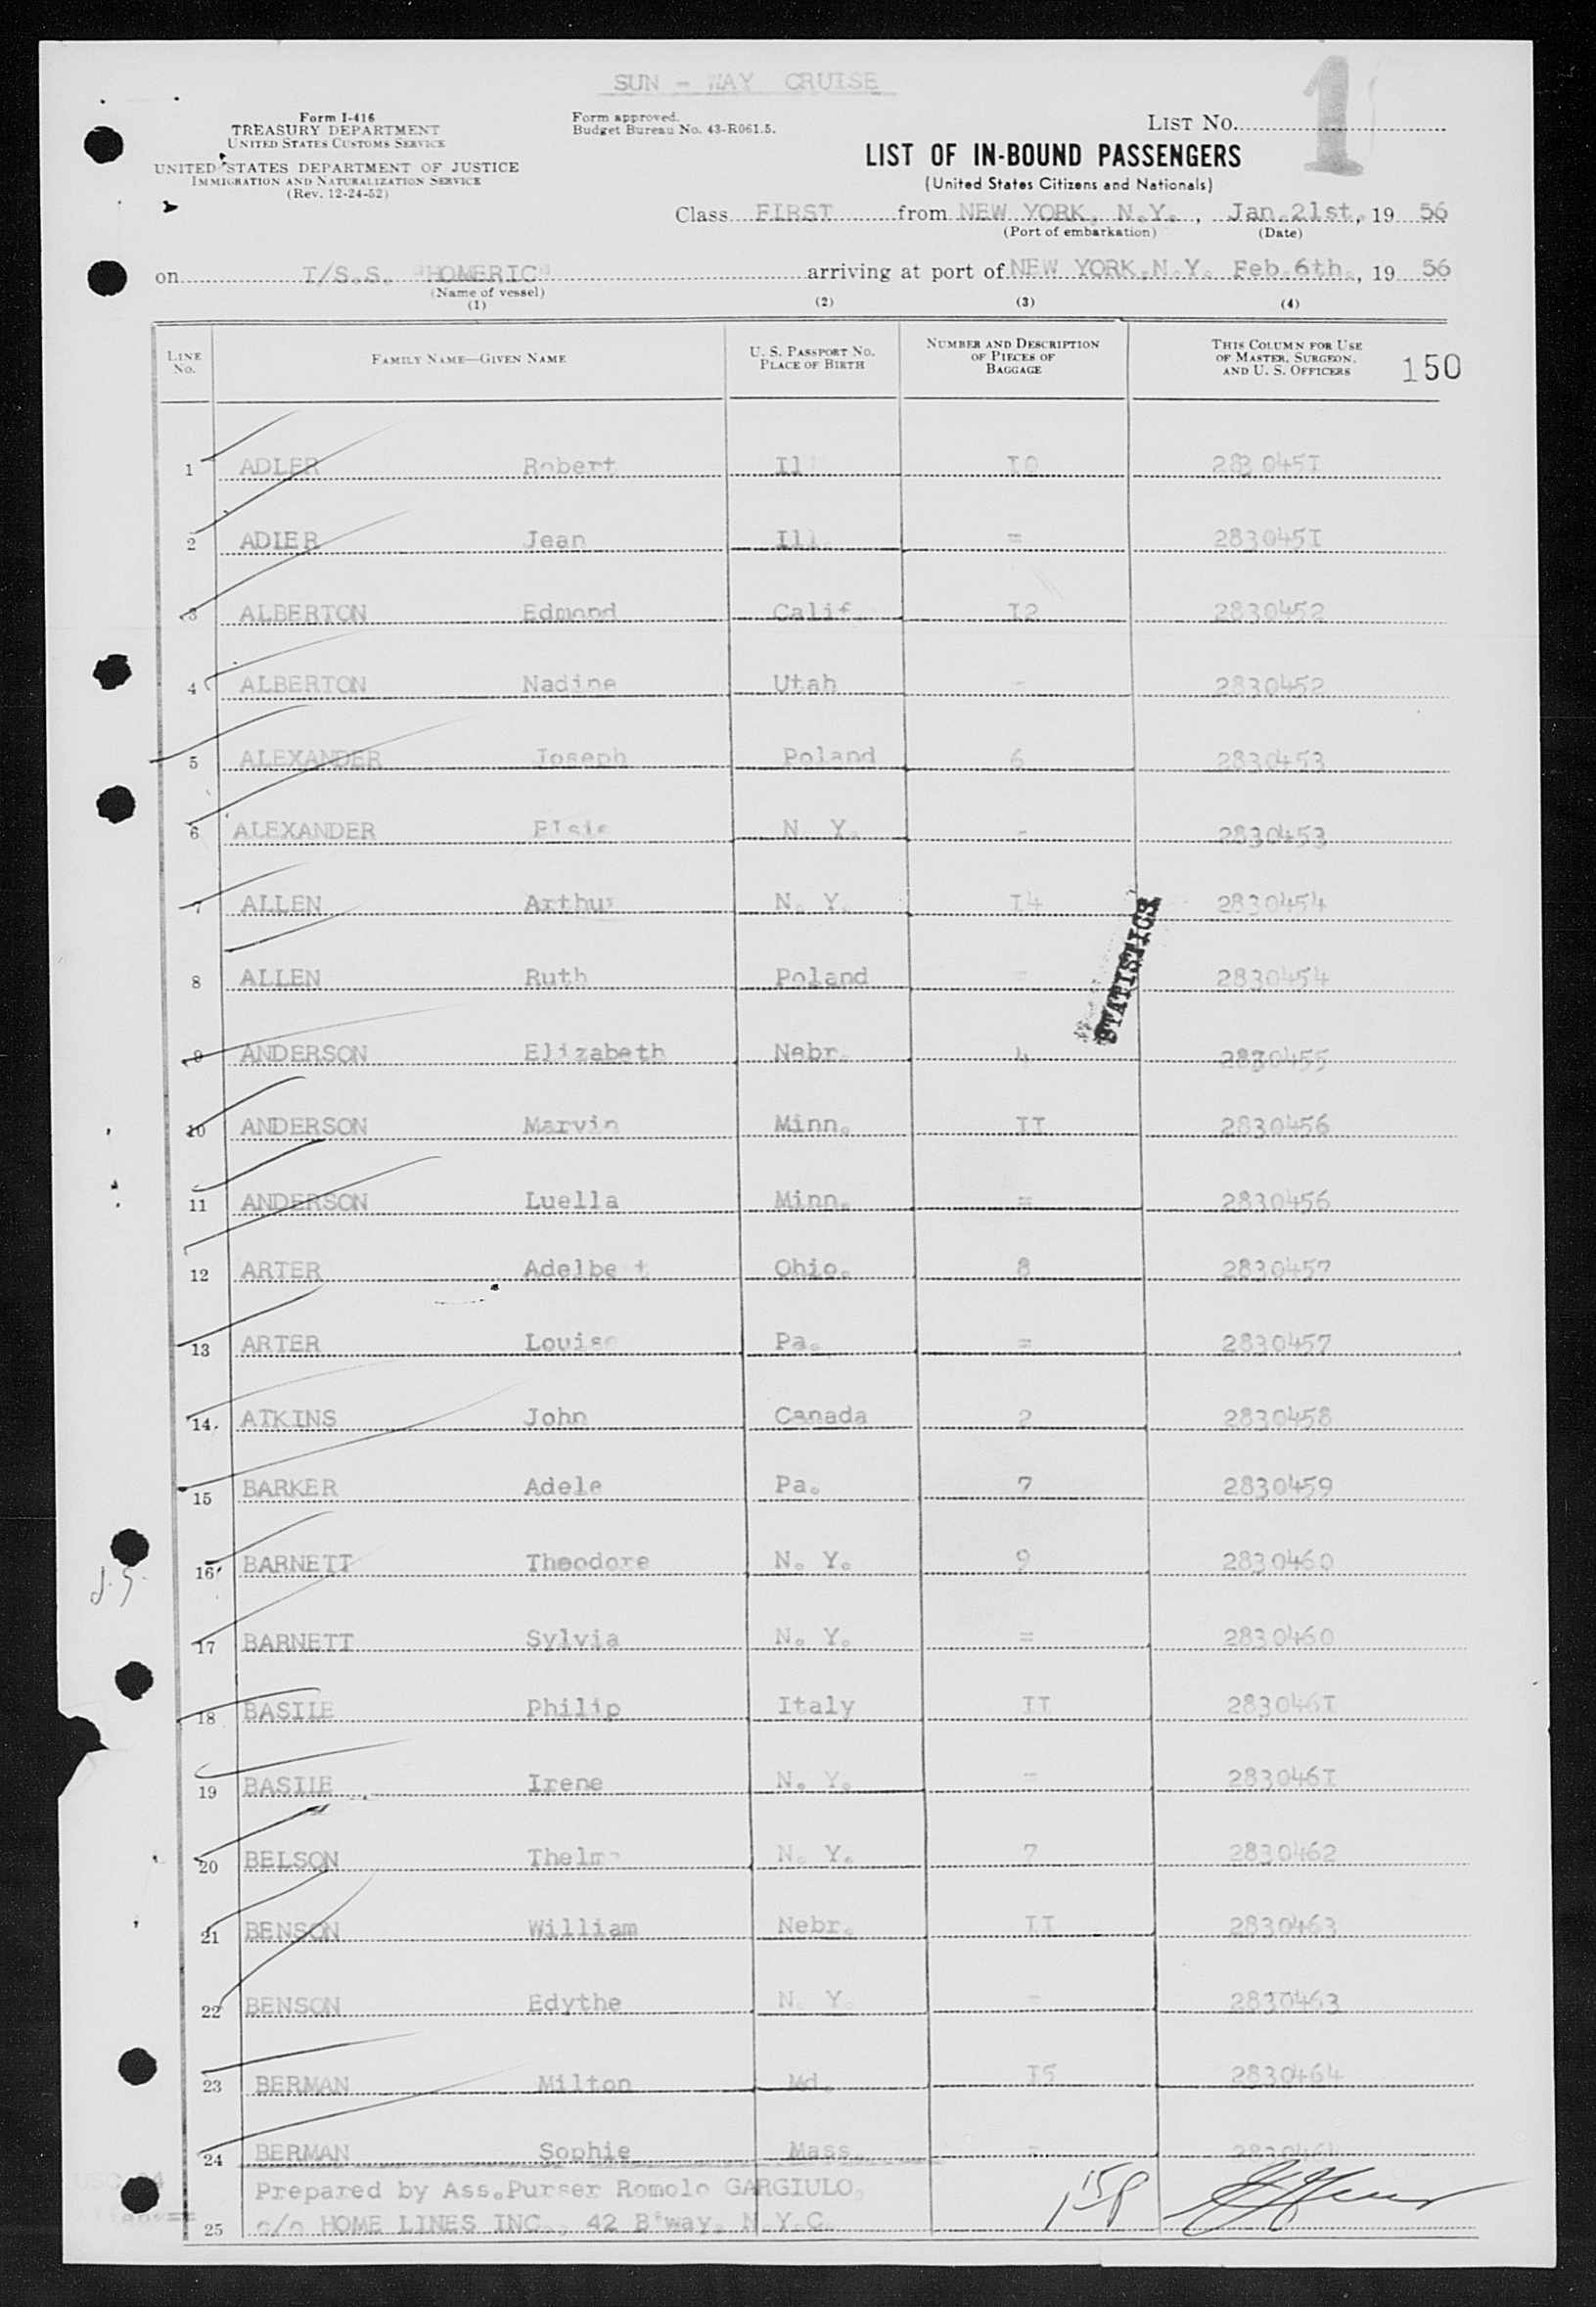 SUN - WAY CRUISE
1
Form I-416
TREASURY DEPARTMENT
UNITED STATES CUSTOMS SERVICE
UNITED STATES DEPARTMENT OF JUSTICE
IMMIGRATION AND NATURALIZATION SERVICE
(Rev. 12-24-52)
Form approved.
Budget Bureau No. 43-R061.5.
LIST NO.
LIST OF IN-BOUND PASSENGERS
(United States Citizens and Nationals)
Class FIRST from NEW YORK, N.Y., Jan.21st., 19 56
(Port of embarkation) (Date)
on T/S.S. "HOMERIC" arriving at port of NEW YORK,N.Y. Feb.6th., 19 56
(Name of vessel)
(1) (2) (3) (4)
LINE NO. FAMILY NAME—GIVEN NAME U. S. PASSPORT NO. PLACE OF BIRTH NUMBER AND DESCRIPTION OF PIECES OF BAGGAGE THIS COLUMN FOR USE OF MASTER, SURGEON, AND U. S. OFFICERS 150
1 ADLER Robert Ill I0 283045I
2 ADLER Jean Ill. = 283045I
3 ALBERTON Edmond Calif. I2 2830452
4 ALBERTON Nadine Utah - 2830452
5 ALEXANDER Joseph Poland 6 2830453
6 ALEXANDER Elsie N. Y. - 2830453
7 ALLEN Arthur N. Y. I4 2830454
8 ALLEN Ruth Poland 2830454
STATISTICS
9 ANDERSON Elizabeth Nebr. 4 2830455
10 ANDERSON Marvin Minn. II 2830456
11 ANDERSON Luella Minn. = 2830456
12 ARTER Adelbe t Ohio. 8 2830457
13 ARTER Louise Pa. = 2830457
14 ATKINS John Canada 2 2830458
15 BARKER Adele Pa. 7 2830459
16 BARNETT Theodore N. Y. 9 2830460
17 BARNETT Sylvia N. Y. = 2830460
18 BASILE Philip Italy II 283046I
19 BASILE Irene N. Y. = 283046I
20 BELSON Thelma N. Y. 7 2830462
21 BENSON William Nebr. II 2830463
22 BENSON Edythe N. Y. - 2830463
23 BERMAN Milton Md. I5 2830464
24 BERMAN Sophie Mass. - 2830464
Prepared by Ass.Purser Romolo GARGIULO,
25 c/o HOME LINES INC., 42 B'way, N.Y.C.
158